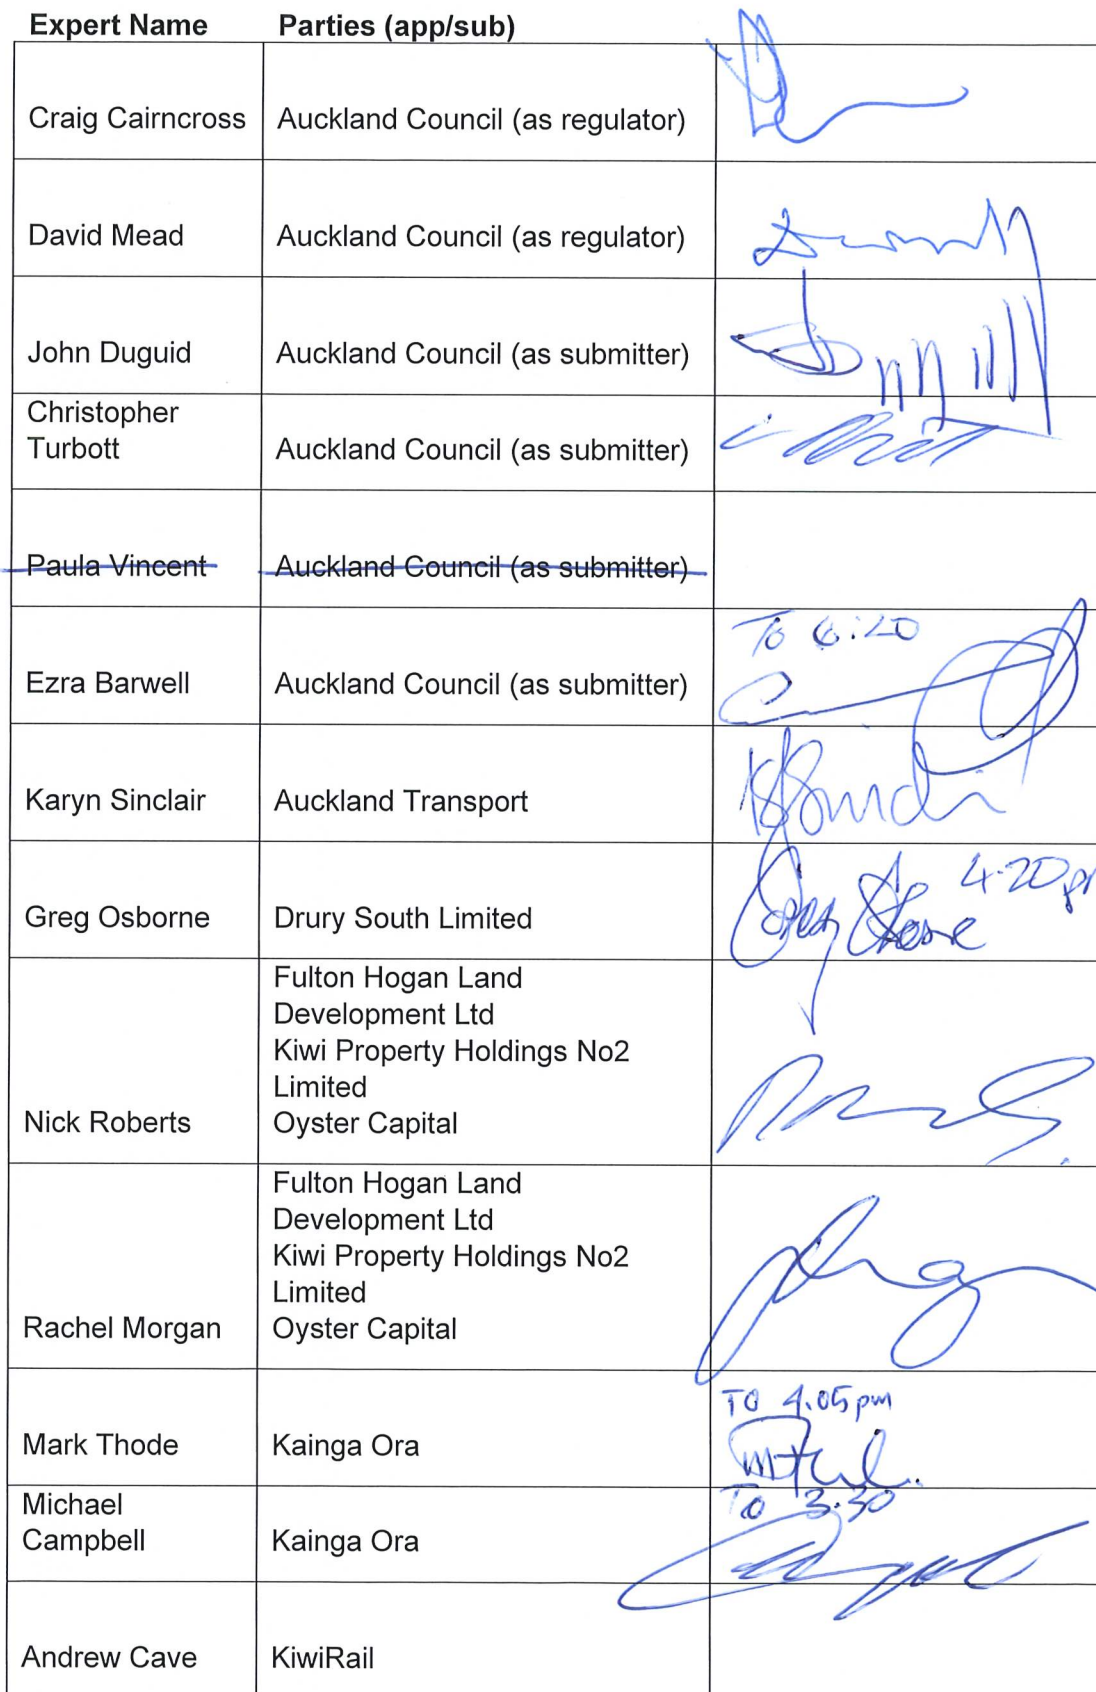 Expert Name Parties (app/sub)
Craig Cairncross Auckland Council (as regulator)
David Mead Auckland Council (as regulator)
John Duguid Auckland Council (as submitter)
Christopher
Turbott Auckland Council (as submitter)
Paula Vincent Auckland Council (as submitter)
To 6:20
Ezra Barwell Auckland Council (as submitter)
Karyn Sinclair Auckland Transport
To 4.20 p
Greg Osborne Drury South Limited
Fulton Hogan Land
Development Ltd
Kiwi Property Holdings No2
Limited
Nick Roberts Oyster Capital
Fulton Hogan Land
Development Ltd
Kiwi Property Holdings No2
Limited
Rachel Morgan Oyster Capital
TO 4.05 pm
Mark Thode Kainga Ora
To 3.30
Michael
Campbell Kainga Ora
Andrew Cave KiwiRail